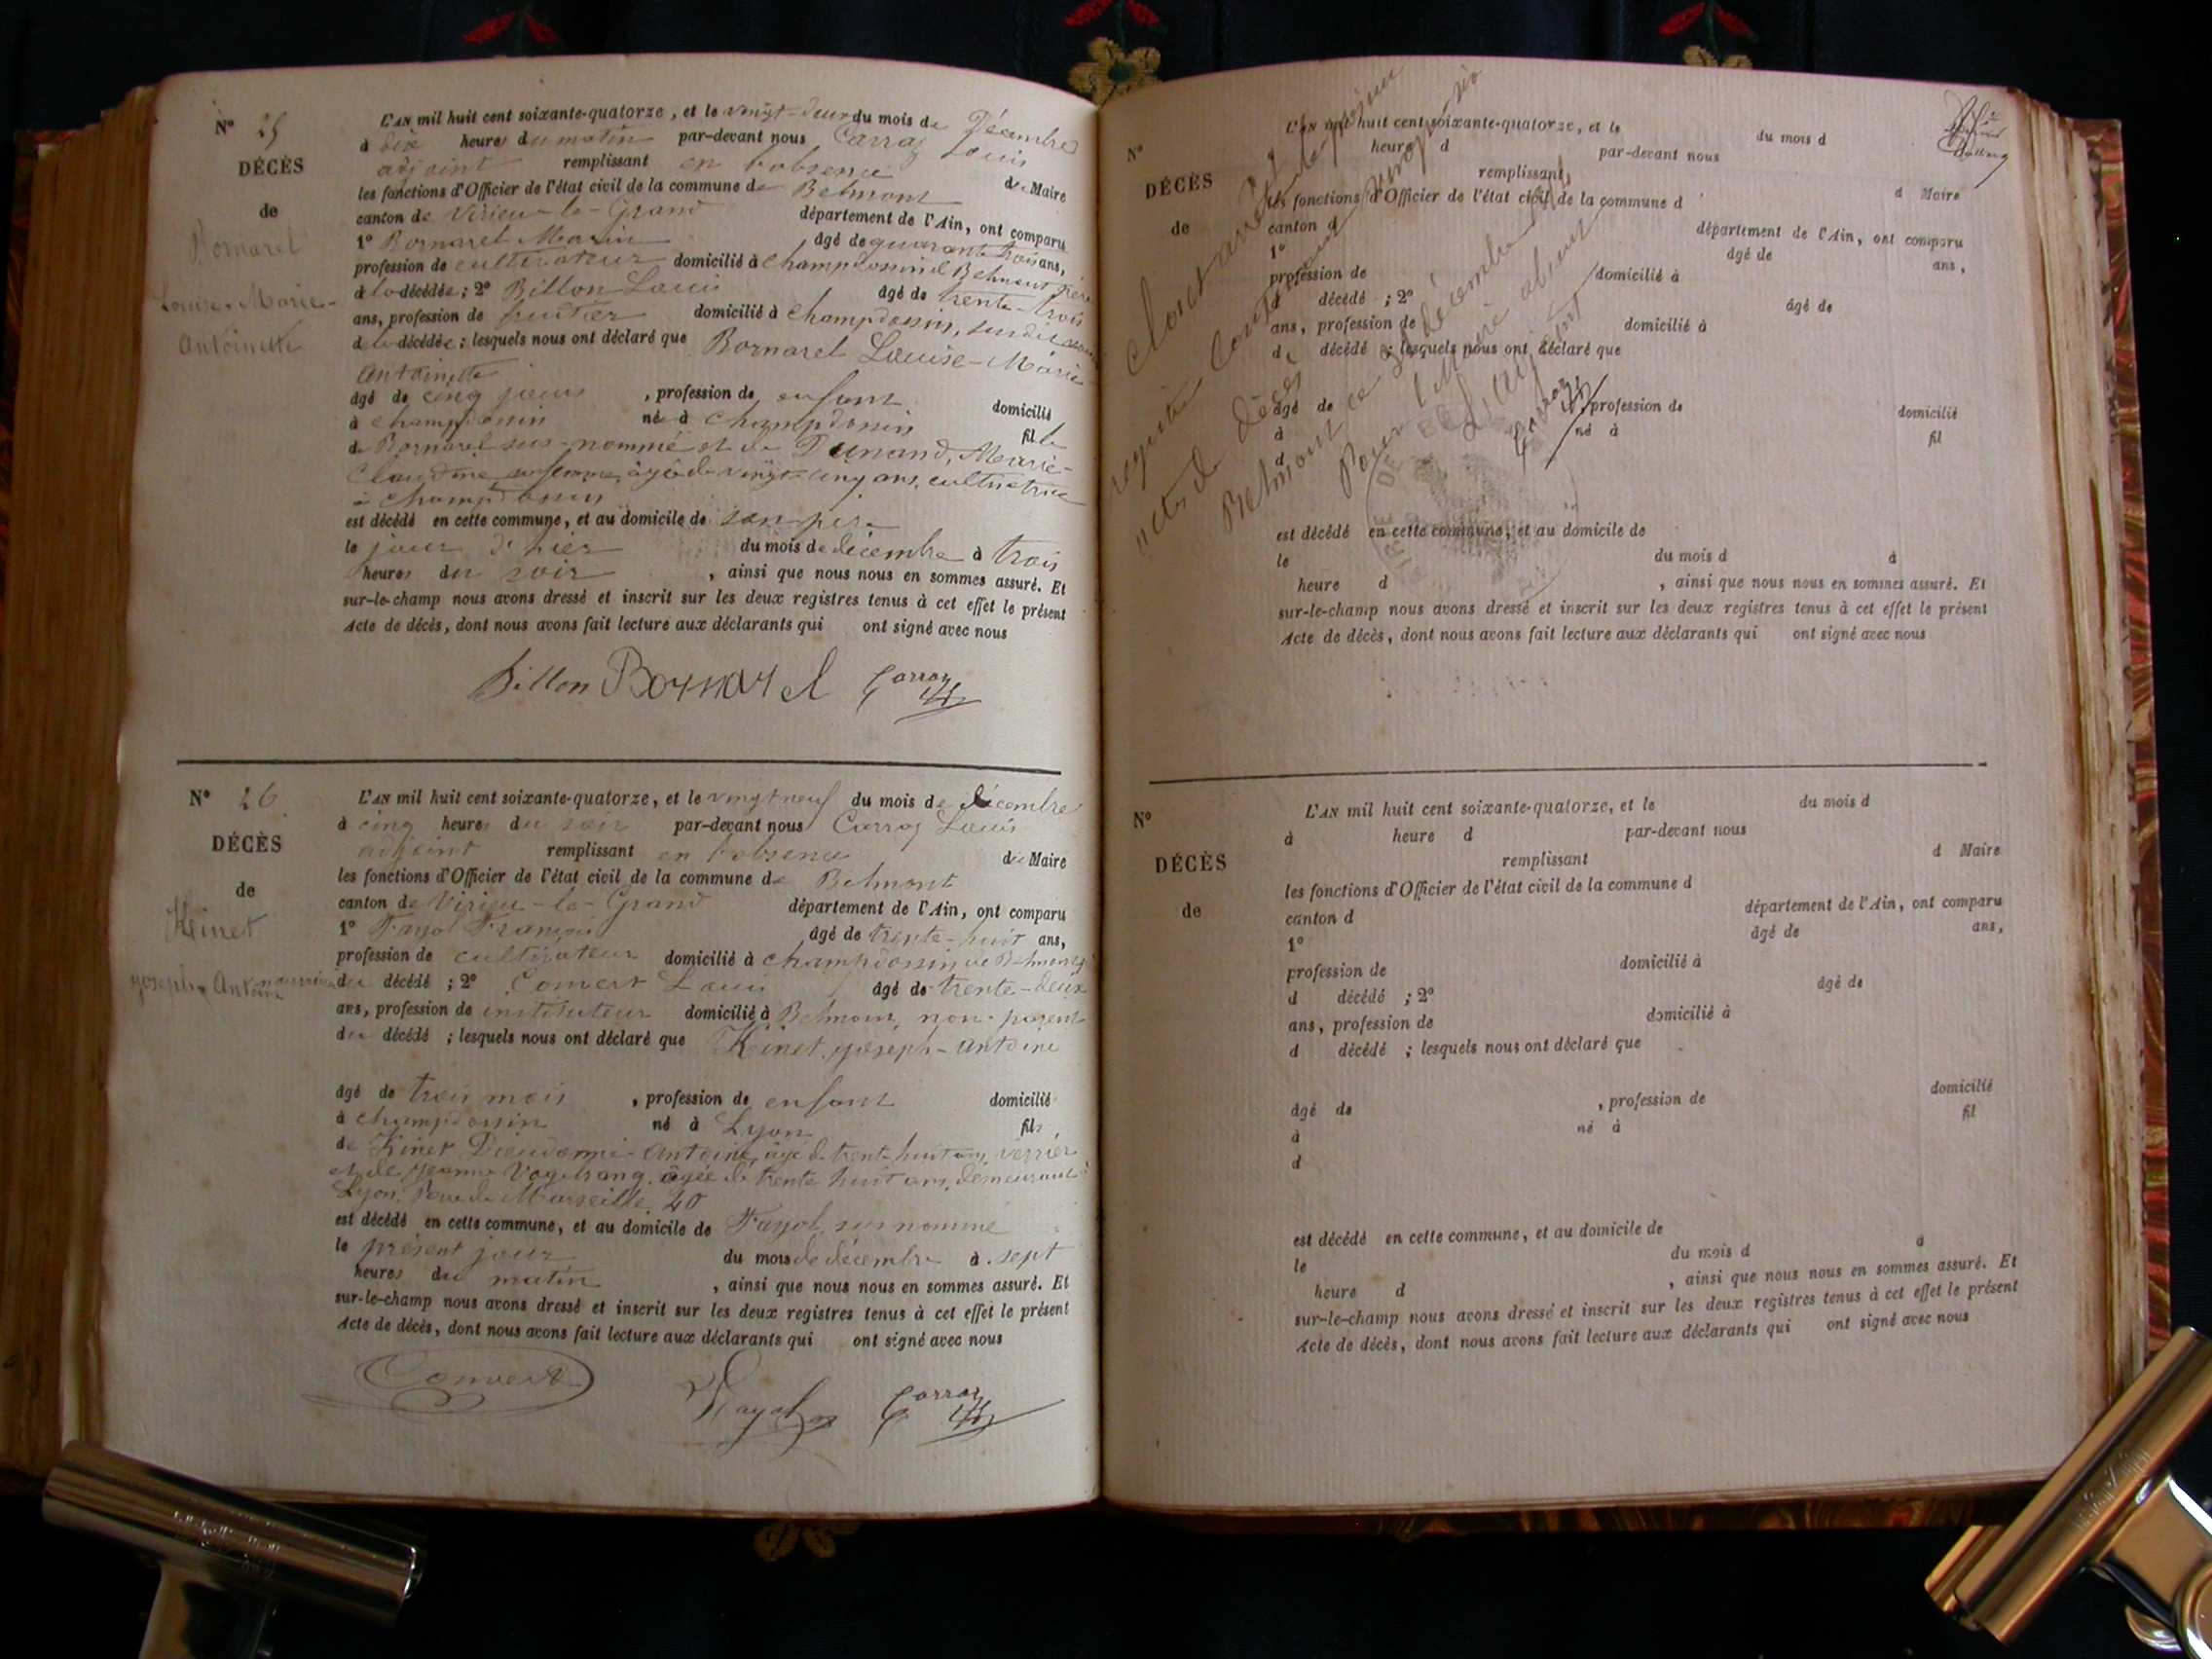 N° 25
DÉCÈS
de
Bornarel
Louise-Marie-
Antoinette
L'AN mil huit cent soixante-quatorze, et le vingt-deux du mois de Décembre
à dix heures du matin par-devant nous Carraz Louis
adjoint remplissant en l'absence du Maire
les fonctions d'Officier de l'état civil de la commune de Belmont
canton de Virieu-le-Grand département de l'Ain, ont comparu
1° Bornarel Marin âgé de quarante trois ans,
profession de cultivateur domicilié à Champdossin de Belmont père
de la décédée; 2° Billon Louis âgé de trente-trois
ans, profession de fruitier domicilié à Champdossin,
de la décédée; lesquels nous ont déclaré que Bornarel Louise-Marie
Antoinette
âgé de cinq jours, profession de enfant domicilié
à Champdossin né à Champdossin fille
de Bornarel sus-nommé et de Dunand, Marie-
Claudine sa femme, âgée de vingt-cinq ans, cultivatrice
à Champdossin
est décédé en cette commune, et au domicile de son père
le jour d'hier du mois de décembre à trois
heures du soir, ainsi que nous nous en sommes assuré. Et
sur-le-champ nous avons dressé et inscrit sur les deux registres tenus à cet effet le présent
Acte de décès, dont nous avons fait lecture aux déclarants qui ont signé avec nous
Billon Bornarel Carraz
N° 26
DÉCÈS
de
Kinet
Joseph-Antoine
L'AN mil huit cent soixante-quatorze, et le vingt neuf du mois de décembre
à cinq heures du soir par-devant nous Carraz Louis
adjoint remplissant en l'absence du Maire
les fonctions d'Officier de l'état civil de la commune de Belmont
canton de Virieu-le-Grand département de l'Ain, ont comparu
1° Fayol François âgé de trente-huit ans,
profession de cultivateur domicilié à Champdossin de Belmont
du décédé; 2° Convert Louis âgé de trente-deux
ans, profession de instituteur domicilié à Belmont, non parent
du décédé; lesquels nous ont déclaré que Kinet, Joseph-Antoine
âgé de trois mois, profession de enfant domicilié
à Champdossin né à Lyon fils
de Kinet Dieudonné-Antoine, âgé de trente huit ans, verrier
et de Jeanne âgée de trente huit ans, demeurant à
Lyon, Rue de Marseille, 40
est décédé en cette commune, et au domicile de Fayol, sus nommé
le présent jour du mois de décembre à sept
heures du matin, ainsi que nous nous en sommes assuré. Et
sur-le-champ nous avons dressé et inscrit sur les deux registres tenus à cet effet le présent
Acte de décès, dont nous avons fait lecture aux déclarants qui ont signé avec nous
Convert Fayol Carraz
N°
DÉCÈS
de
L'AN mil huit cent soixante-quatorze, et le du mois d
heure d par-devant nous
remplissant d Maire
les fonctions d'Officier de l'état civil de la commune d
canton d département de l'Ain, ont comparu
1° âgé de ans,
profession de domicilié à
d décédé ; 2° âgé de
ans, profession de domicilié à
d décédé ; lesquels nous ont déclaré que
âgé de , profession de domicilié
à né à fil
d
est décédé en cette commune, et au domicile de
le du mois d à
heure d , ainsi que nous nous en sommes assuré. Et
sur-le-champ nous avons dressé et inscrit sur les deux registres tenus à cet effet le présent
Acte de décès, dont nous avons fait lecture aux déclarants qui ont signé avec nous
Clos et arrêté le présent
registre contenant vingt six
actes de décès
Belmont ce 31 décembre
Pour le Maire absent
L'Adjoint
Carraz
N°
DÉCÈS
de
L'AN mil huit cent soixante-quatorze, et le du mois d
à heure d par-devant nous
remplissant d Maire
les fonctions d'Officier de l'état civil de la commune d
canton d département de l'Ain, ont comparu
1° âgé de ans,
profession de domicilié à
d décédé ; 2° âgé de
ans, profession de domicilié à
d décédé ; lesquels nous ont déclaré que
âgé de , profession de domicilié
à né à fil
d
est décédé en cette commune, et au domicile de
le du mois d à
heure d , ainsi que nous nous en sommes assuré. Et
sur-le-champ nous avons dressé et inscrit sur les deux registres tenus à cet effet le présent
Acte de décès, dont nous avons fait lecture aux déclarants qui ont signé avec nous